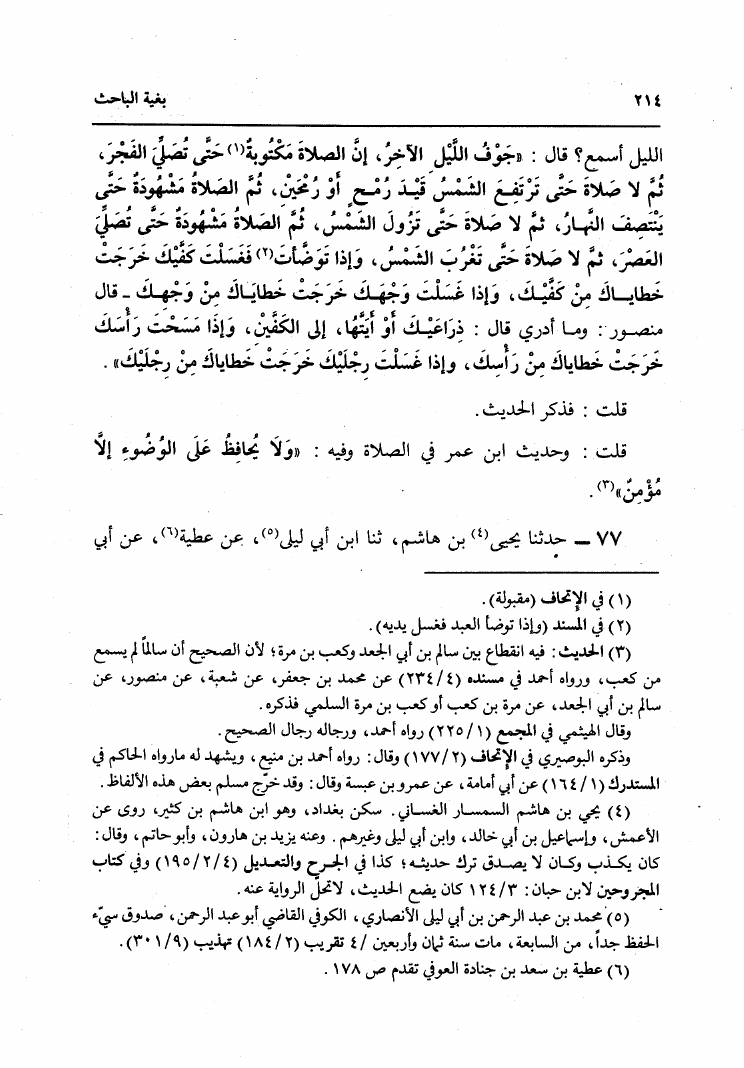 ٢١٤ بغية الباحث
الليل أسمع؟ قال : «جَوْفُ اللَّيْلِ الآخِرُ، إِنَّ الصلاةَ مَكْتُوبةٌ(١) حَتَّى تُصَلِّيَ الفَجْرَ،
ثُمَّ لا صَلاةَ حَتَّى تَرْتَفِعَ الشَّمْسُ قَيْدَ رُمْحٍ أَوْ رُمْحَيْنِ، ثُمَّ الصَّلاةُ مَشْهُودَةٌ حَتَّى
يَنْتَصِفَ النَّهارُ، ثُمَّ لا صَلاةَ حَتَّى تَزُولَ الشَّمْسُ، ثُمَّ الصَّلاةُ مَشْهُودَةٌ حَتَّى تُصَلِّيَ
العَصْرَ، ثُمَّ لا صَلاةَ حَتَّى تَغْرُبَ الشَّمْسُ، وَإِذا تَوَضَّأتَ(٢) فَغَسَلْتَ كَفَّيْكَ خَرَجَتْ
خَطاياكَ مِنْ كَفَّيْكَ، وَإِذا غَسَلْتَ وَجْهَكَ خَرَجَتْ خَطاياكَ مِنْ وَجْهِكَ ـ قال
منصور : وما أدري قال : ذِرَاعَيْكَ أَوْ أَيَّتُها، إلى الكَفَّيْنِ، وَإِذَا مَسَحْتَ رَأْسَكَ
خَرَجَتْ خَطاياكَ مِنْ رَأْسِكَ، وإذا غَسَلْتَ رِجْلَيْكَ خَرَجَتْ خَطاياكَ مِنْ رِجْلَيْكَ».
قلت : فذكر الحديث.
قلت : وحديث ابن عمر في الصلاة وفيه : «وَلَا يُحافِظُ عَلَى الوُضُوءِ إلَّا
مُؤْمِنٌ»(٣).
٧٧ ـ حدثنا يحيى(٤) بن هاشم، ثنا ابن أبي ليلى(٥)، عن عطية(٦)، عن أبي
(١) في الإتحاف (مقبولة).
(٢) في المسند (وإذا توضأ العبد فغسل يديه).
(٣) الحديث : فيه انقطاع بين سالم بن أبي الجعد وكعب بن مرة؛ لأن الصحيح أن سالماً لم يسمع
من كعب، ورواه أحمد في مسنده (٢٣٤/٤) عن محمد بن جعفر، عن شعبة، عن منصور، عن
سالم بن أبي الجعد، عن مرة بن كعب أو كعب بن مرة السلمي فذكره.
وقال الهيثمي في المجمع (٢٢٥/١) رواه أحمد، ورجاله رجال الصحيح.
وذكره البوصيري في الإتحاف (١٧٧/٢) وقال: رواه أحمد بن منيع، ويشهد له مارواه الحاكم في
المستدرك (١٦٤/١) عن أبي أمامة، عن عمرو بن عبسة وقال: وقد خرّج مسلم بعض هذه الألفاظ.
(٤) يحي بن هاشم السمسار الغساني. سكن بغداد، وهو ابن هاشم بن كثير، روى عن
الأعمش، وإسماعيل بن أبي خالد، وابن أبي ليلى وغيرهم. وعنه يزيد بن هارون، وأبو حاتم، وقال:
كان يكذب وكان لا يصدق ترك حديثه؛ كذا في الجرح والتعديل (١٩٥/٢/٤) وفي كتاب
المجروحين لابن حبان: ١٢٤/٣ كان يضع الحديث، لاتحلّ الرواية عنه.
(٥) محمد بن عبد الرحمن بن أبي ليلى الأنصاري، الكوفي القاضي أبو عبد الرحمن، صدوق سيّء
الحفظ جداً، من السابعة، مات سنة ثمان وأربعين /٤ تقريب (١٨٤/٢) تهذيب (٣٠١/٩).
(٦) عطية بن سعد بن جنادة العوفي تقدم ص ١٧٨.